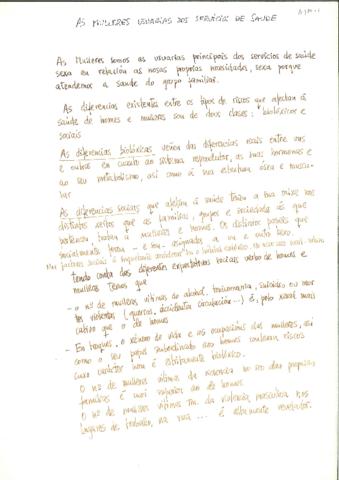 AS MULLERES USUARIAS DOS SERVICIOS DE SAUDE
As Mulleres somos as usuarias principais dos servicios de saúde
sexa en relación as nosas propias necesidades, sexa porque
atendemos a saude do grupo familiar.
As diferencias existentes entre os tipos de riscos que afectan á
saúde de homes e mulleres son de dous clases: biolóxicos e
sociais
As diferencias biolóxicas veñen das diferencias reais entre uns
e outros en canto ao sistema reprodutor, as súas hormonas e
ao seu metabolismo, así como á súa estrutura ósea e muscu-
lar
As diferencias sociais que afectan á saúde teñen a súa raíz nos
distintos xeitos que as familias, grupos e sociedade ás que
pertencen, tratan a mulleres e homes. Os distintos papeis que
socialmente e asignados a un e outro sexo.
factores sociais é importante
Tendo conta das diferentes expectativas sociais verbo de homes e
mulleres temos que
- o nº de mulleres vítimas do alcohol, toxicomanía, suicidio, ou mor
tes violentas (guerras, accidentes circulación...) é, polo xeral máis
cativo que o de homes
- En troques, o réxime de vida e as ocupacións das mulleres, así
como o seu papel subordinado aos homes conlevan riscos
cuxo carácter non é estritamente biolóxico.
O nº de mulleres vítimas da violencia no seo das propias
familias é moi superior ao de homes
O nº de mulleres vítimas tm. da violencia masculina nos
lugares de traballo, na rúa ... é altamente revelador.